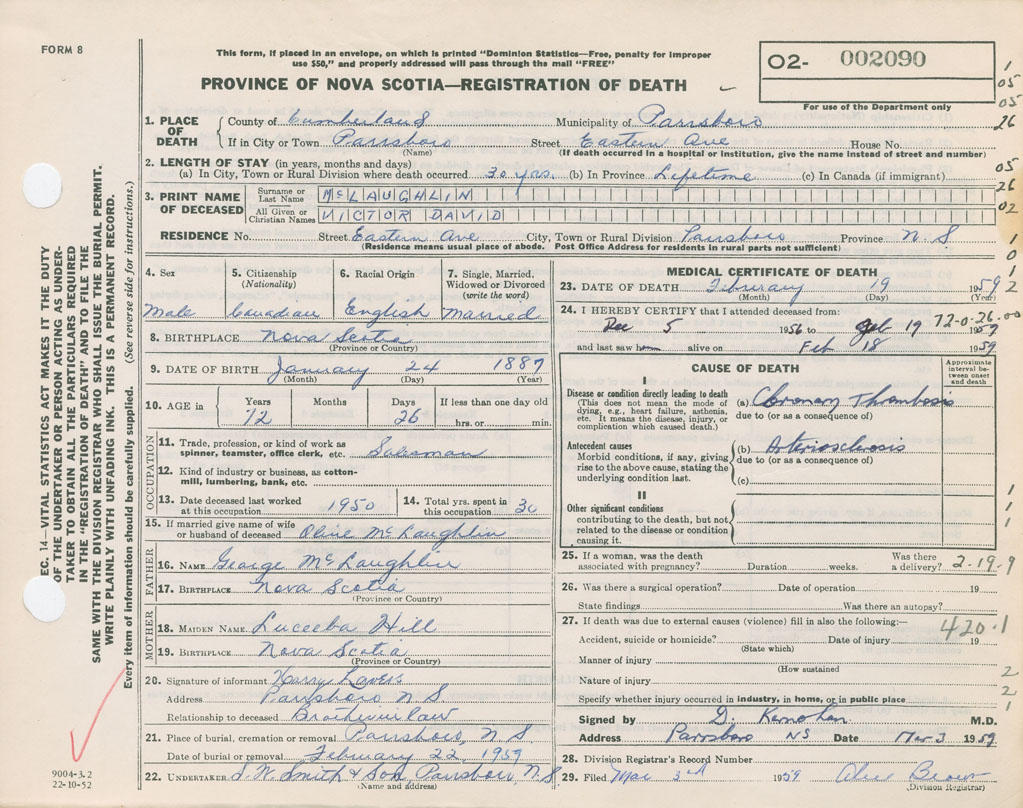 FORM 8
This form, if placed in an envelope, on which is printed "Dominion Statistics—Free, penalty for improper
use $50," and properly addressed will pass through the mail "FREE"
PROVINCE OF NOVA SCOTIA—REGISTRATION OF DEATH
O2- 002090
For use of the Department only
1
05
05
26
05
26
02
1
0
1
2
EC. 14—VITAL STATISTICS ACT MAKES IT THE DUTY
OF THE UNDERTAKER OR PERSON ACTING AS UNDER-
TAKER TO OBTAIN ALL THE PARTICULARS REQUIRED
IN THE "REGISTRATION OF DEATH" AND TO FILE THE
SAME WITH THE DIVISION REGISTRAR WHO SHALL ISSUE THE BURIAL PERMIT.
WRITE PLAINLY WITH UNFADING INK. THIS IS A PERMANENT RECORD.
Every item of information should be carefully supplied. (See reverse side for instructions.)
1. PLACE OF DEATH
County of Cumberland Municipality of Parrsboro
If in City or Town Parrsboro Street Eastern Ave House No.
(Name) (If death occurred in a hospital or institution, give the name instead of street and number)
2. LENGTH OF STAY (in years, months and days)
(a) In City, Town or Rural Division where death occurred 30 yrs. (b) In Province Lifetime (c) In Canada (if immigrant)
3. PRINT NAME OF DECEASED
Surname or Last Name McLAUGHLIN
All Given or Christian Names VICTOR DAVID
RESIDENCE No. Street Eastern Ave City, Town or Rural Division Parrsboro Province N.S
(Residence means usual place of abode. Post Office Address for residents in rural parts not sufficient)
4. Sex
Male
5. Citizenship
(Nationality)
Canadian
6. Racial Origin
English
7. Single, Married,
Widowed or Divorced
(write the word)
Married
8. BIRTHPLACE Nova Scotia
(Province or Country)
9. DATE OF BIRTH January 24 1887
(Month) (Day) (Year)
10. AGE in Years Months Days If less than one day old
72 26 hrs. or min.
OCCUPATION
11. Trade, profession, or kind of work as
spinner, teamster, office clerk, etc. Salesman
12. Kind of industry or business, as cotton-
mill, lumbering, bank, etc.
13. Date deceased last worked
at this occupation 1950
14. Total yrs. spent in
this occupation 30
15. If married give name of wife
or husband of deceased Olive McLaughlin
FATHER
16. NAME George McLaughlin
17. BIRTHPLACE Nova Scotia
(Province or Country)
MOTHER
18. MAIDEN NAME Hill
19. BIRTHPLACE Nova Scotia
(Province or Country)
20. Signature of informant Harry
Address Parrsboro N S
Relationship to deceased Brotherinlaw
21. Place of burial, cremation or removal Parrsboro, N S
Date of burial or removal February 22, 1959
22. UNDERTAKER J. W. Smith & Son, Parrsboro, N.S
(Name and address)
9004-3.2
22-10-52
MEDICAL CERTIFICATE OF DEATH
23. DATE OF DEATH February 19 1959
(Month) (Day) (Year)
24. I HEREBY CERTIFY that I attended deceased from:
72-0-26.00
Dec 5 1956 to Feb 19 1959
and last saw him alive on Feb 18 1959
CAUSE OF DEATH
Approximate
interval be-
tween onset
and death
I
Disease or condition directly leading to death
(This does not mean the mode of
dying, e.g., heart failure, asthenia,
etc. It means the disease, injury, or
complication which caused death.)
(a) Coronary Thrombosis
due to (or as a consequence of)
Antecedent causes
Morbid conditions, if any, giving
rise to the above cause, stating the
underlying condition last.
(b) Arteriosclerosis
due to (or as a consequence of)
(c)
II
Other significant conditions
contributing to the death, but not
related to the disease or condition
causing it.
1
1
1
25. If a woman, was the death
associated with pregnancy? Duration weeks. Was there
a delivery?
2-19-9
26. Was there a surgical operation? Date of operation 19
State findings Was there an autopsy?
27. If death was due to external causes (violence) fill in also the following:—
420.1
Accident, suicide or homicide? Date of injury 19
(State which)
Manner of injury
(How sustained
Nature of injury
Specify whether injury occurred in industry, in home, or in public place
2
2
1
Signed by D. M.D.
Address Parrsboro NS Date Mar 3 1959
28. Division Registrar's Record Number
29. Filed Mar 3rd 1959
(Division Registrar)